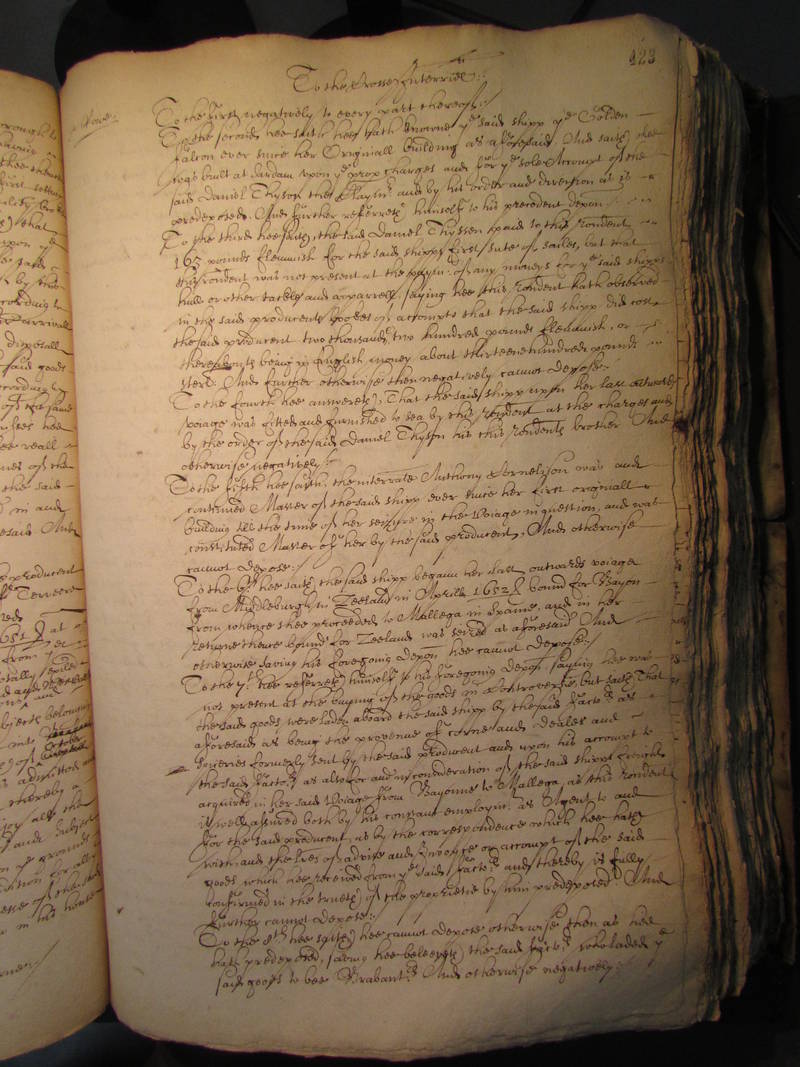 423
To the Crosse Interries:
To the first negatively to every part thereof:/
To the second hee saith hee hath knowne ye said shipp ye Golden
falcon ever since her Originall building as aforesaid And saith shee
was built at Sardam upon ye prop charges and for ye sole Accompt of the
said Daniel Thyson the and by his order and direction as is
predeposed. And further referreth himselfe to his precedent depon
To the third hee saith, the said Daniel Thyssen paid to this rondent
165 pounds flemmish for the said shipps first sute of sailes, but that
this rendent was not present at the paymt of any moneys for ye said shipps
hull or other tackle and apparrell, saying hee this rondent hath observed
in the said producents bookes of accompts that the said shipp did cost
the said producent two thousand two hundred pounds flemmish, or
thereabouts being in English money about thirteene hundred pounds
sterl: And further otherwise then negatively cannot depose:/
To the fourth hee answereth, That the said shipp upon her last outwards
voiage was fitted and furnished to sea by this rendent at the charges and
by the order of the said Daniel Thyson his this rondents brother And
otherwise negatively:/
To the fifth hee saith, the interrate Anthony Cornelison was and
continued Master of the said shipp ever since her first originall
building till the time of her seizure in the voiage in question, and was
constituted Master of her by the said producent, And otherwise
cannot depose:/
To the 6th hee saith, the said shipp began her last outwards voiage
from Middleburgh in Zeeland in Aprill 1652 bound for Bayon
from whence shee proceeded to Mallega in Spaine, and in her
returne thence bound for Zeeland was seized as aforesaid And
otherwise saving his foregoing depon hee cannot depose:/
To the 7th hee referreth himselfe to his foregoing depon saying hee was
not present at the buying of the goods in Controversie, but saith That
the said goods were laden aboard the said shipp by the said factors as
aforesaid as being the provenue of corne and deales and
formerly sent by the said producent and upon his accompt to
the said factors as also for and in consideration of the said shipps freight
acquired in her said voiage from Bayonne to Mallega, as this rondent
is well assured both by his constant employmt as Agent to and
for the said producent, as by the correspondence which hee hath
with and the lres of advise and Invoyce or accompt of the said
goods which hee received from ye said factors and thereby is fully
confirmed in the trueth of the proprietie by him predeposed And
further cannot depose:/
To the 8th hee saith hee cannot depose otherwise then as hee
hath predeposed, saving hee beleeveth the said factors who laded ye
said goods to bee Brabantrs And otherwise negatively:/